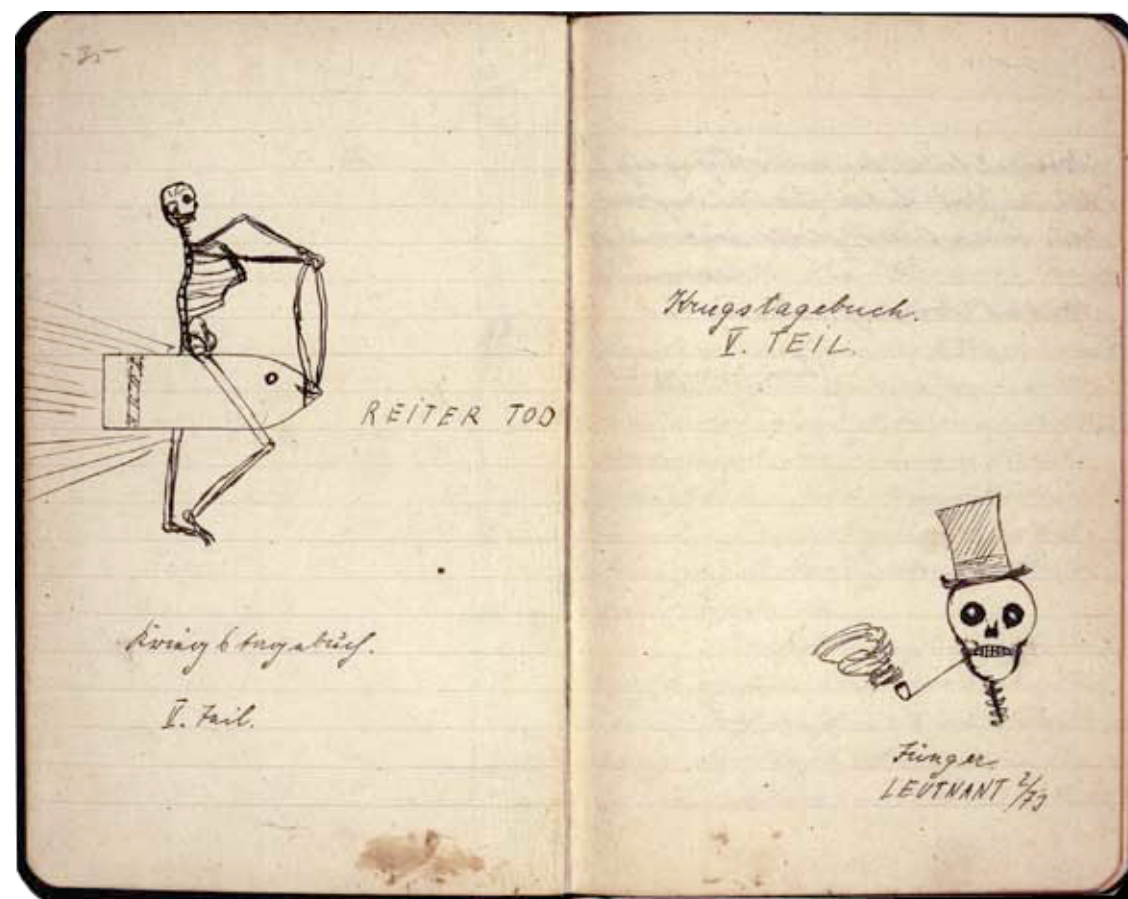 -3-
REITER TOD
Kriegstagebuch.
V. Teil.
Kriegstagebuch.
V. TEIL.
Jünger
LEUTNANT 2/73